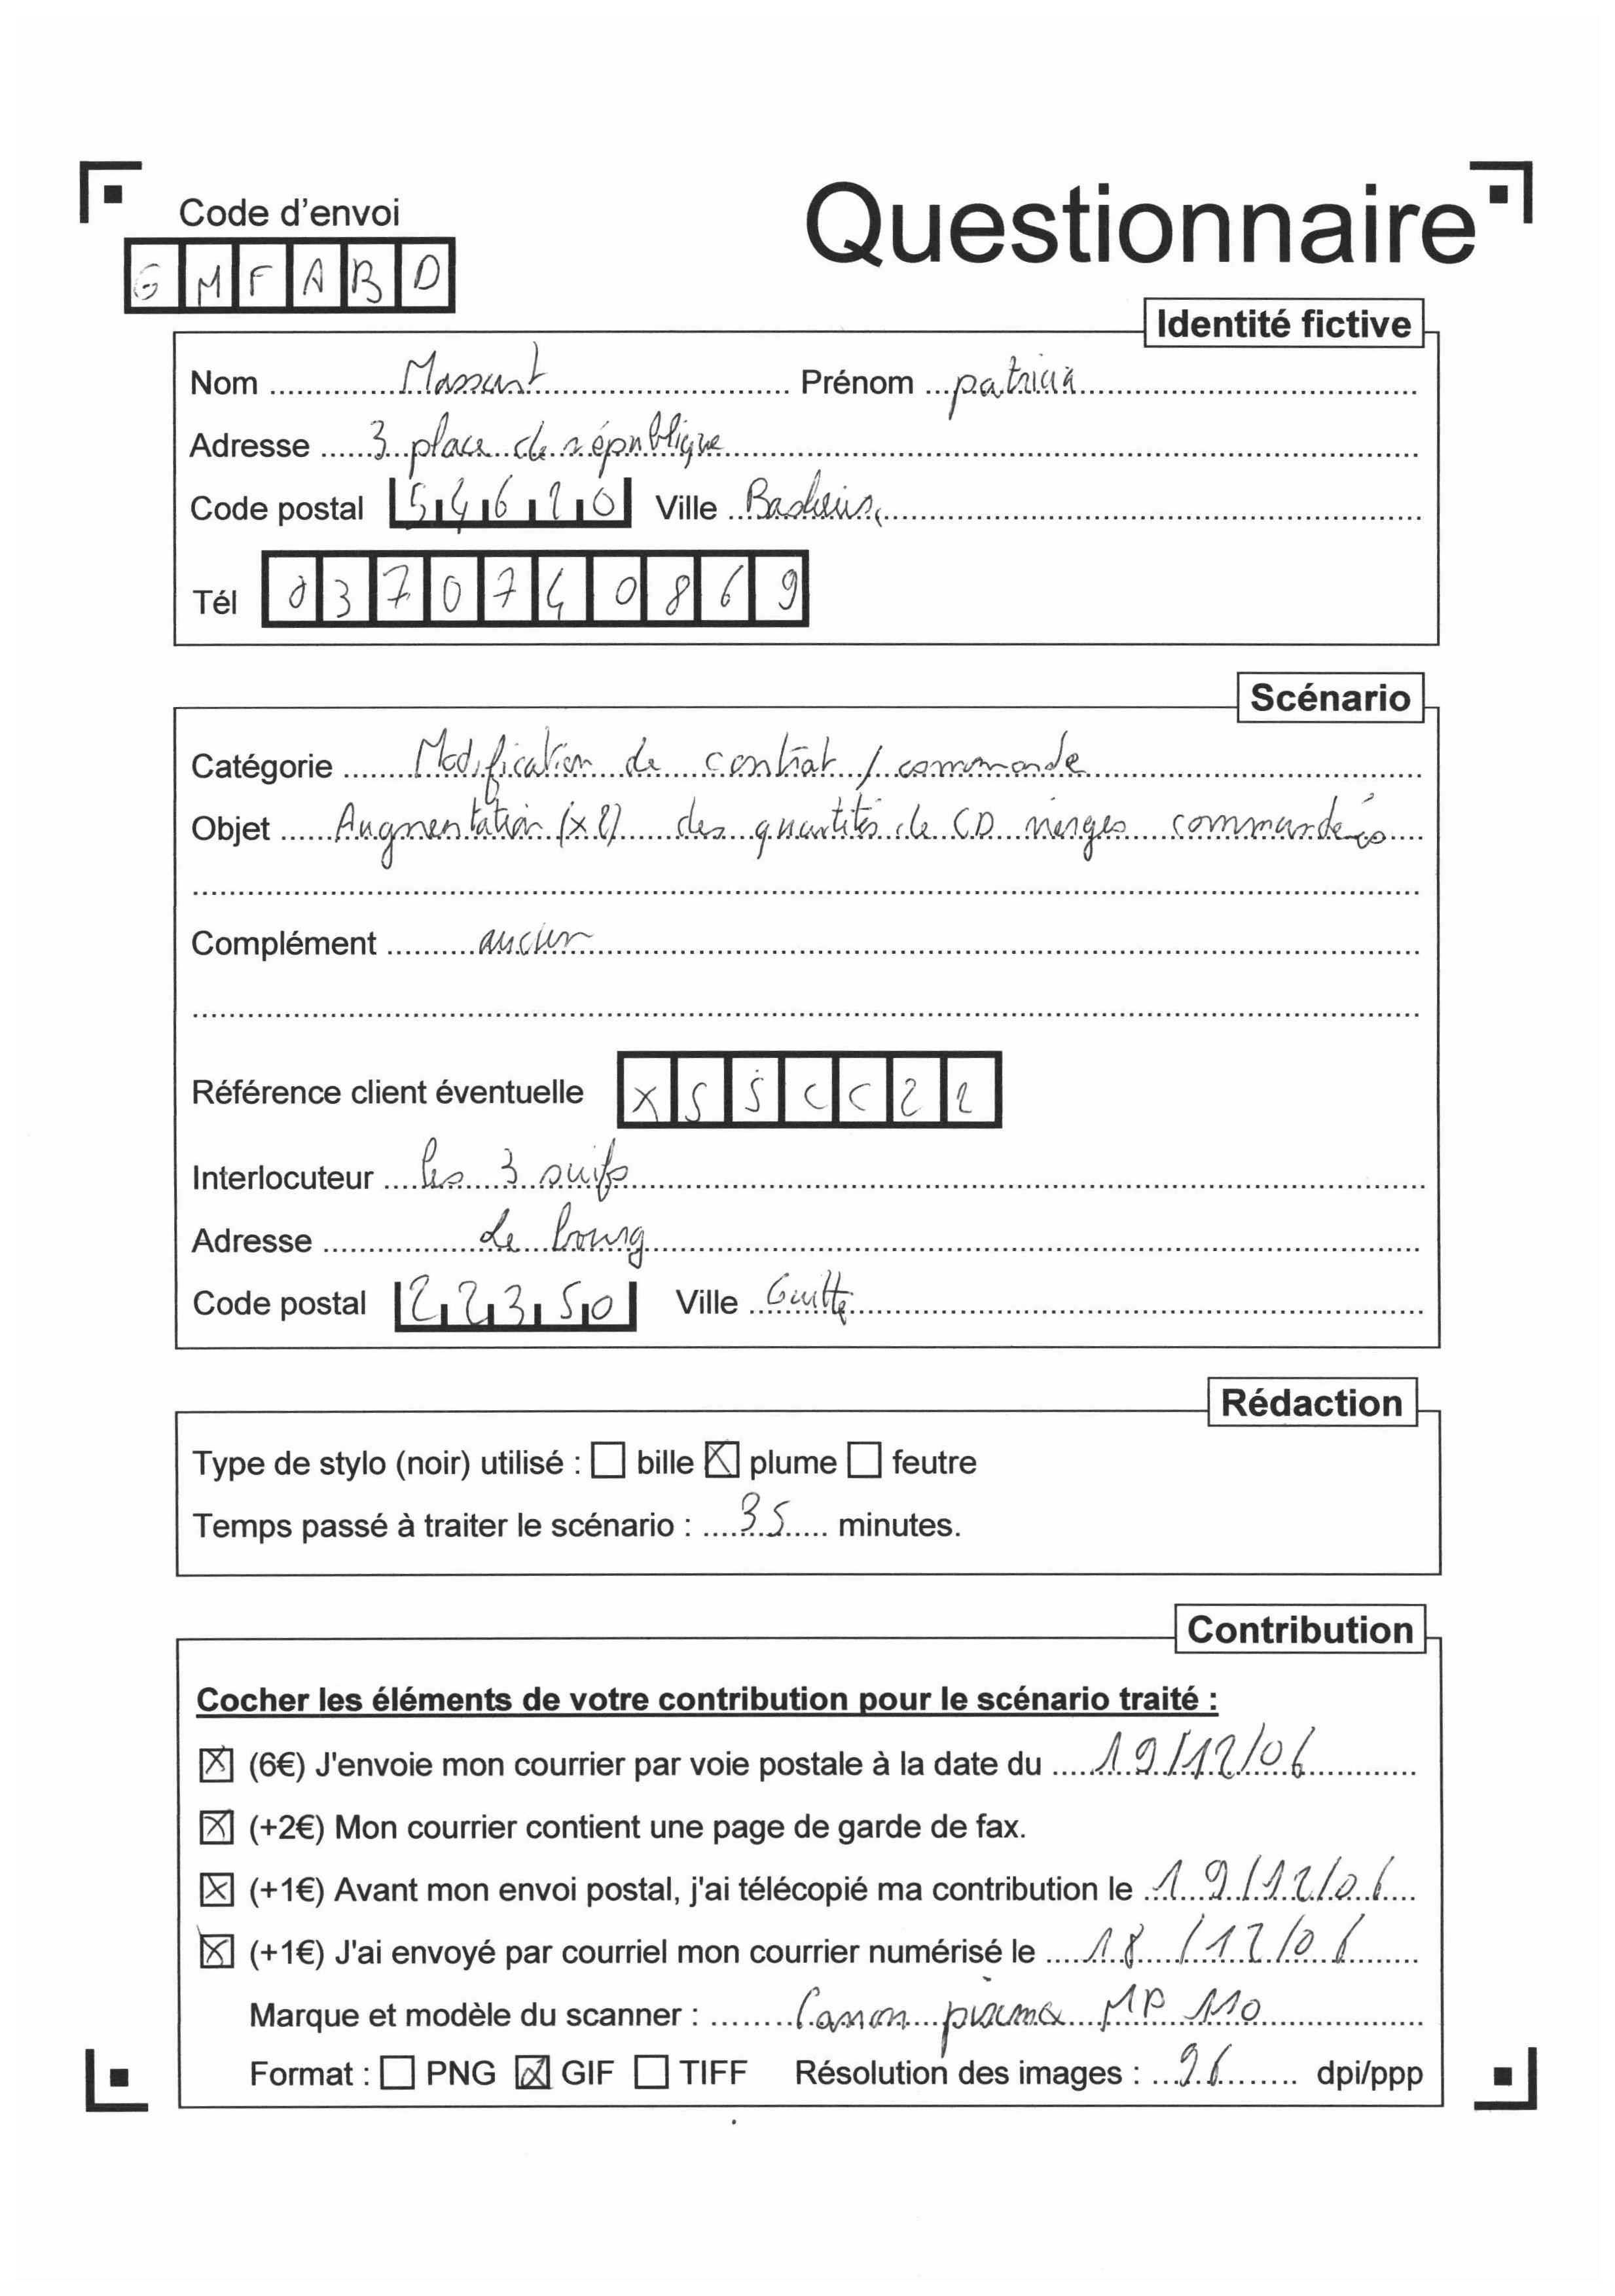 Code d'envoi
Questionnaire
GMFABD
Identité fictive
Nom Massant Prénom patricia
Adresse 3 place de république
Code postal 54620 Ville
Tél 0370740869
Scénario
Catégorie Modification de contrat / commande
Objet Augmentation (x2) des quantités de CD vierges commandés
Complément aucun
Référence client éventuelle XSSCC22
Interlocuteur les 3 suifs
Adresse Le bourg
Code postal 22350 Ville Guitté
Rédaction
Type de stylo (noir) utilisé : ☐ bille ☒ plume ☐ feutre
Temps passé à traiter le scénario : 35 minutes.
Contribution
Cocher les éléments de votre contribution pour le scénario traité :
☒ (6€) J'envoie mon courrier par voie postale à la date du 19/12/06
☒ (+2€) Mon courrier contient une page de garde de fax.
☒ (+1€) Avant mon envoi postal, j'ai télécopié ma contribution le 19/12/06
☒ (+1€) J'ai envoyé par courriel mon courrier numérisé le 18/12/06
Marque et modèle du scanner : Canon pixma MP 110
Format : ☐ PNG ☒ GIF ☐ TIFF Résolution des images : 96 dpi/ppp